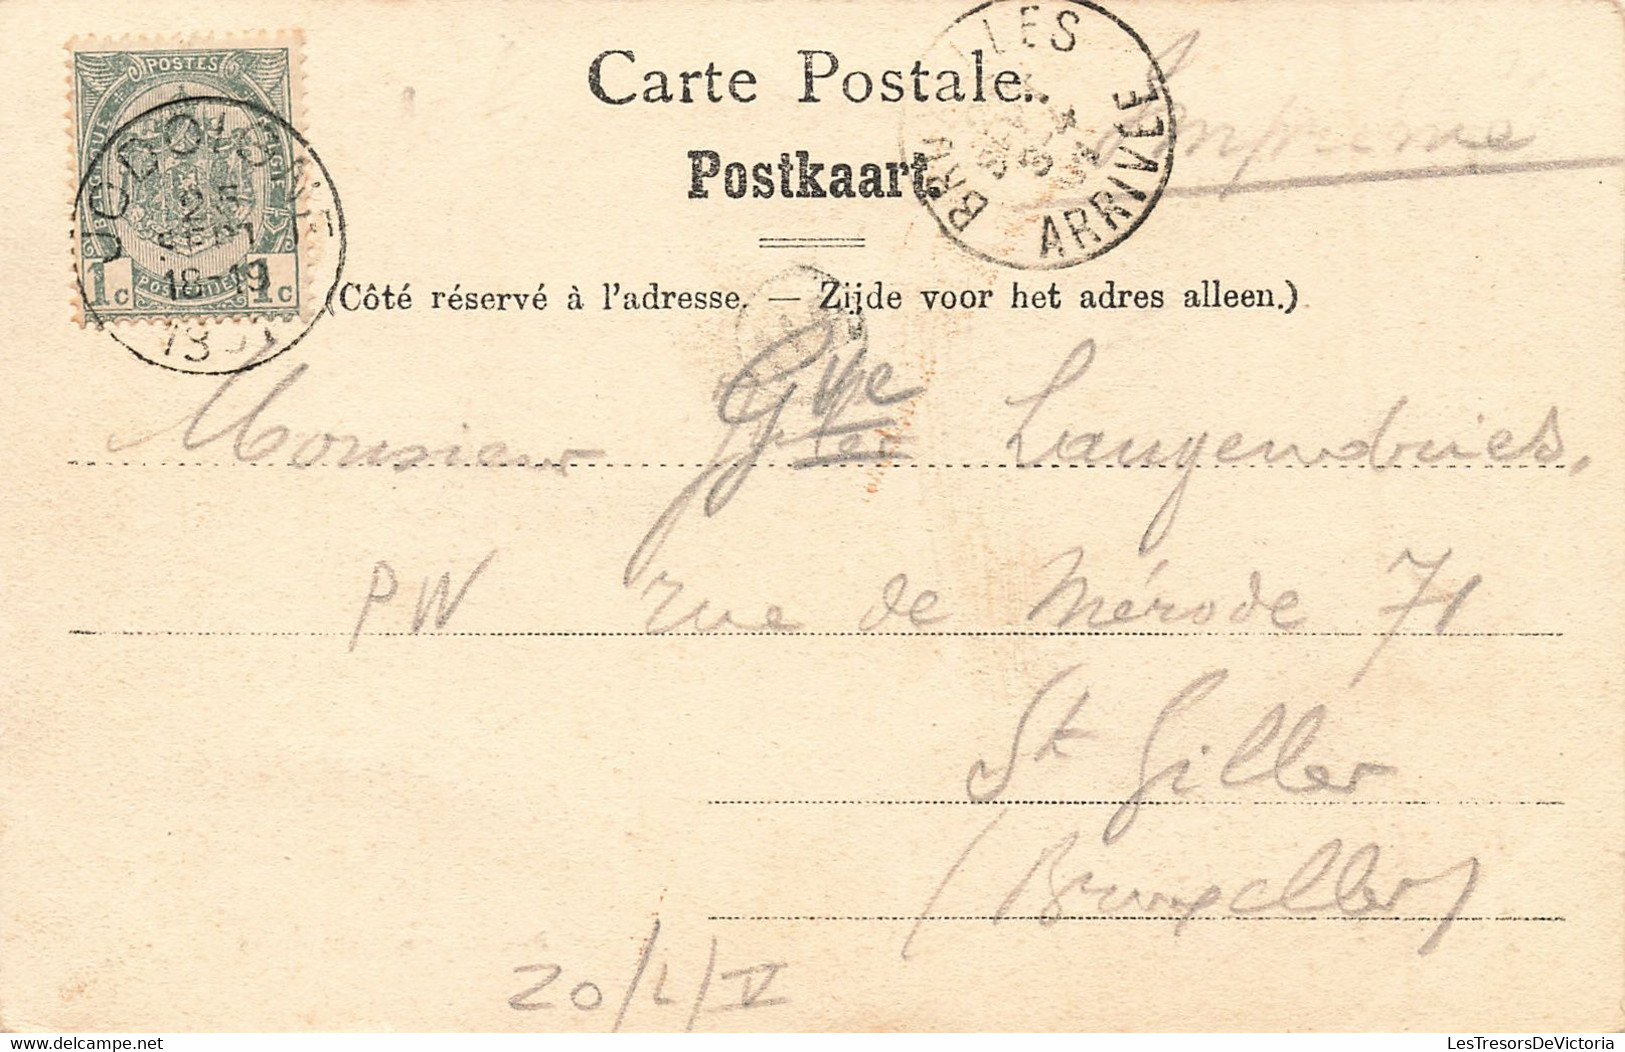 POSTES
BELGIQUE BELGIE
1c 1c
JODOIGNE
25
SEPT
18-19
BRUXELLES
ARRIVEE
Carte Postale.
Postkaart.
Imprimé
(Côté réservé à l'adresse. — Zijde voor het adres alleen.)
Monsieur Gve Langendries,
PW rue de Mérode 71
St Gilles
(Bruxelles)
20/L/V
LesTresorsDeVictoria